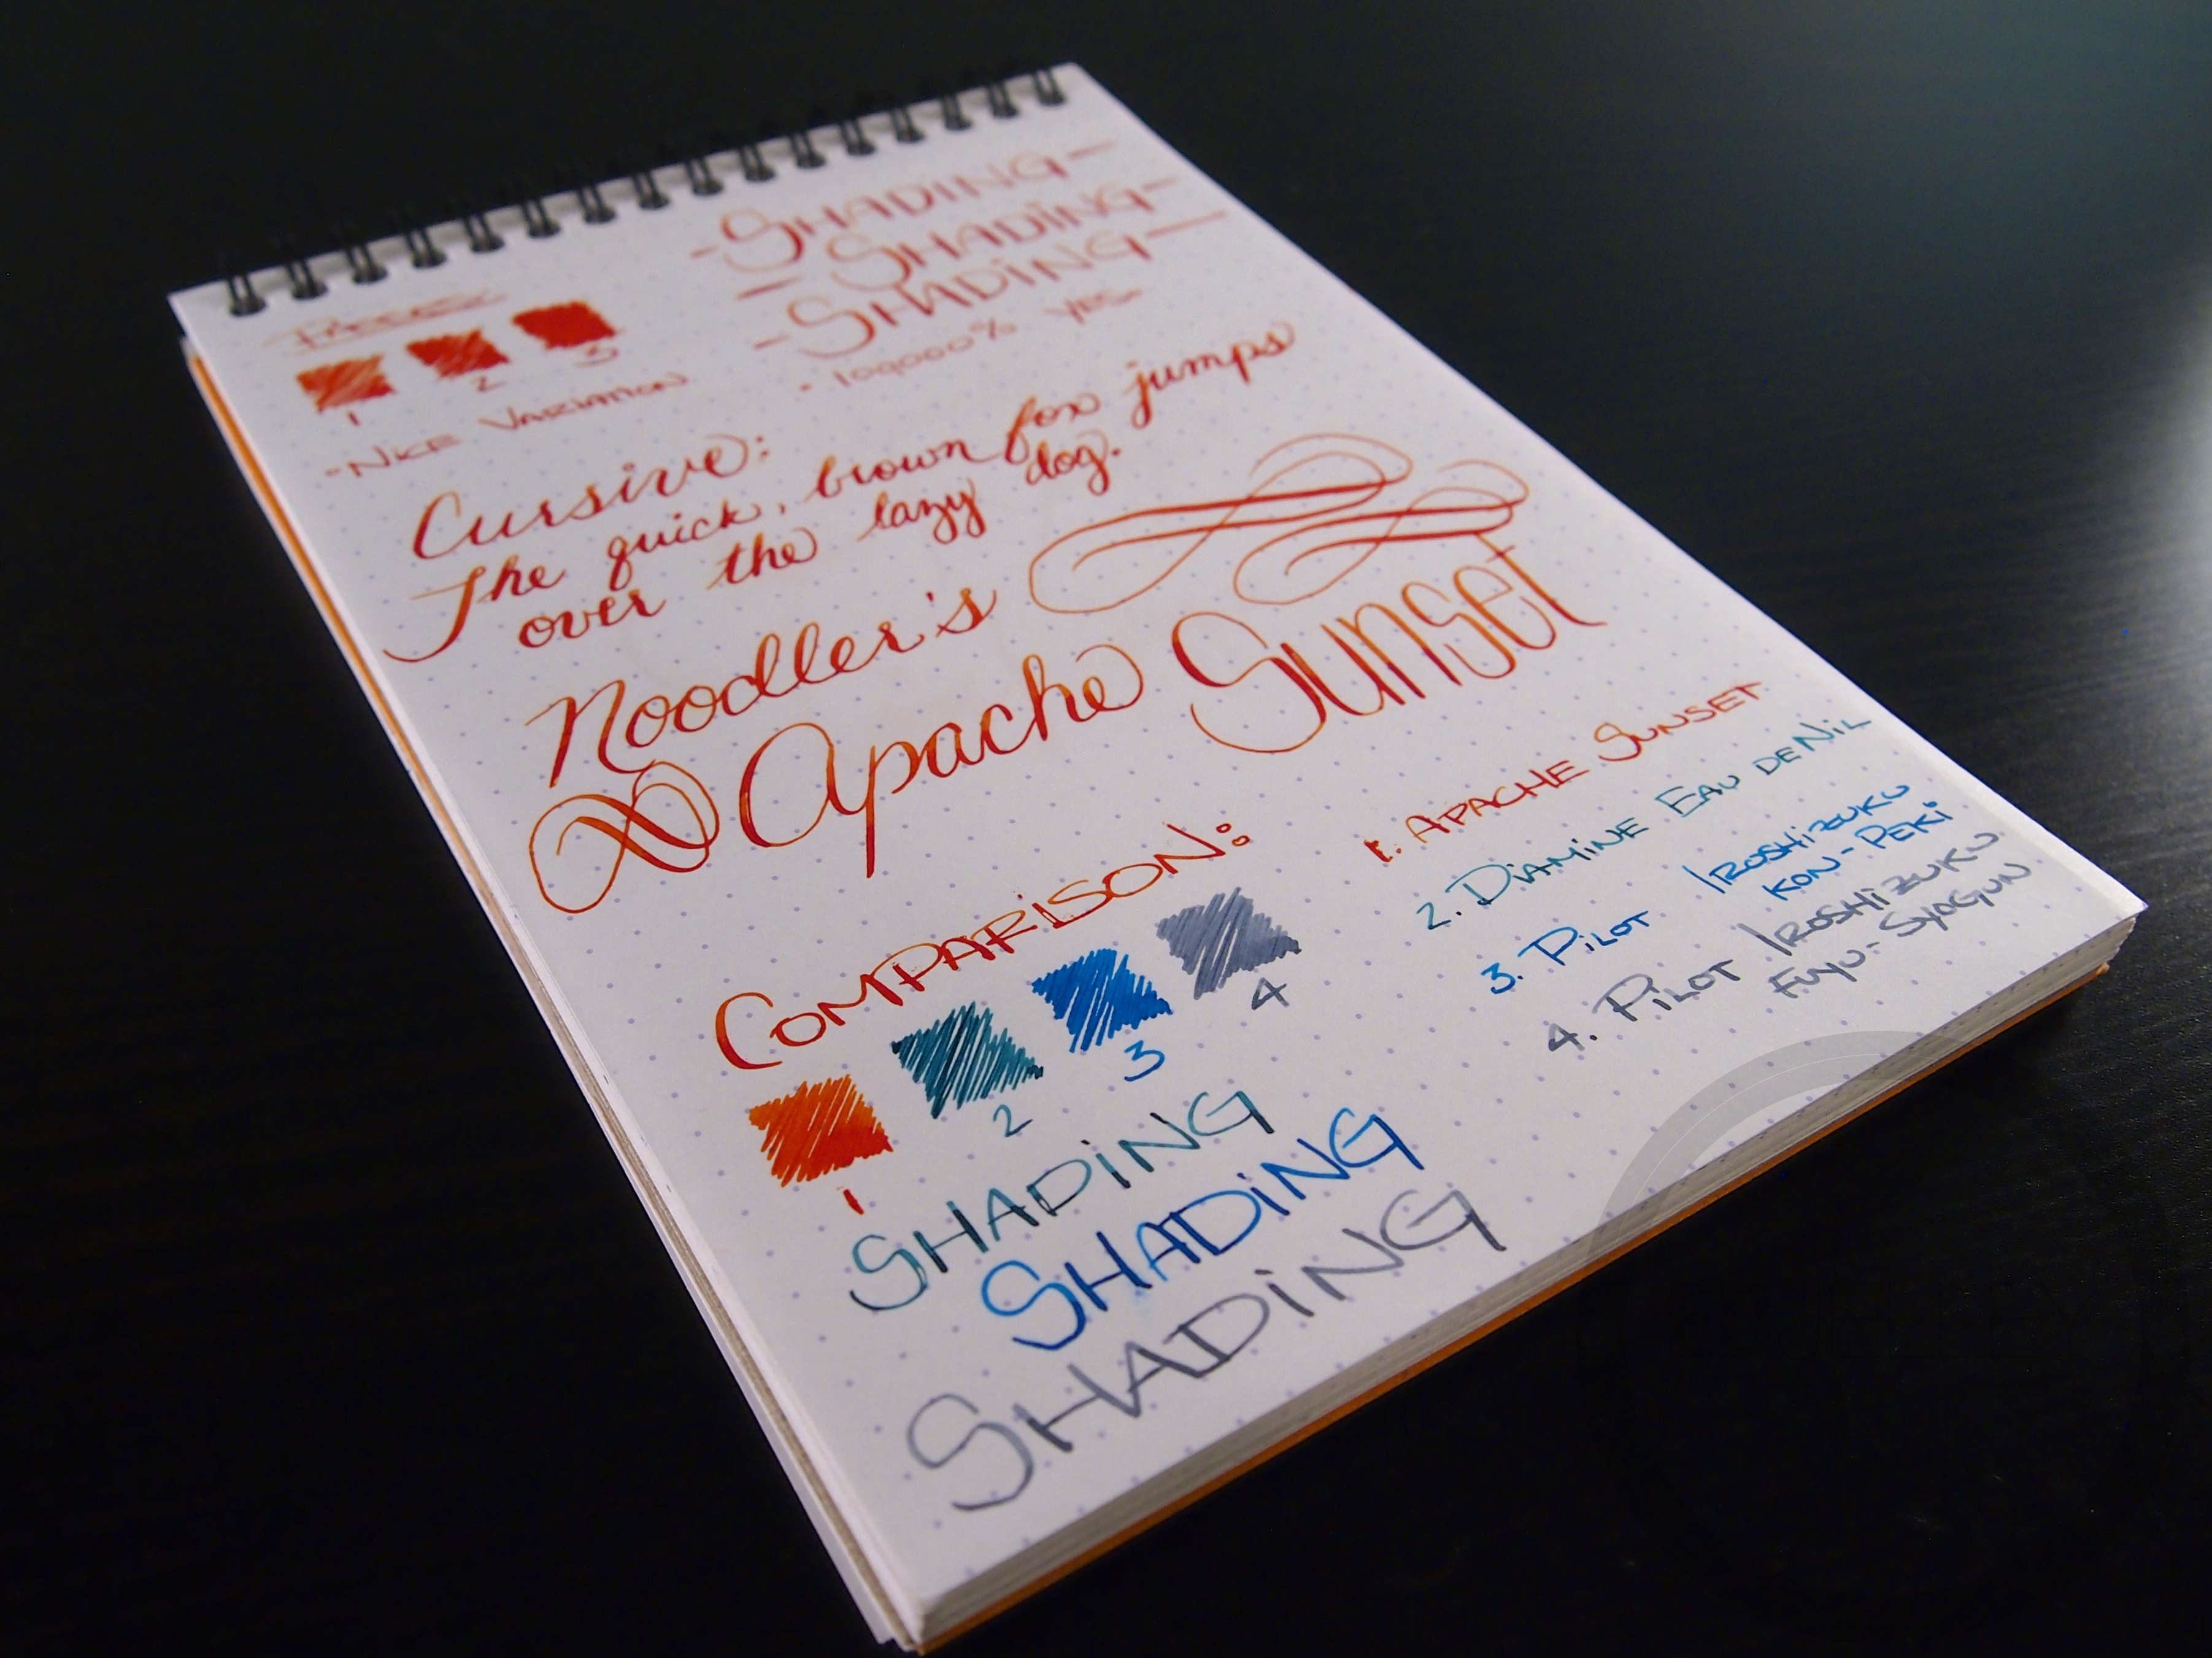 -SHADiNG-
-SHADiNG-
-SHADiNG-
1 2 3
- NICE VARIATION
• 100000% YES
Cursive:
The quick, brown fox jumps
over the lazy dog.
Noodler's
Apache Sunset
COMPARiSON:
1 2 3 4
1. APACHE SUNSET
2. DiAMiNE EAU DE NiL
3. PiLOT IROSHiZUKU
KON-PEKi
4. PiLOT IROSHiZUKU
FUYU-SYOGUN
SHADiNG
SHADiNG
SHADiNG